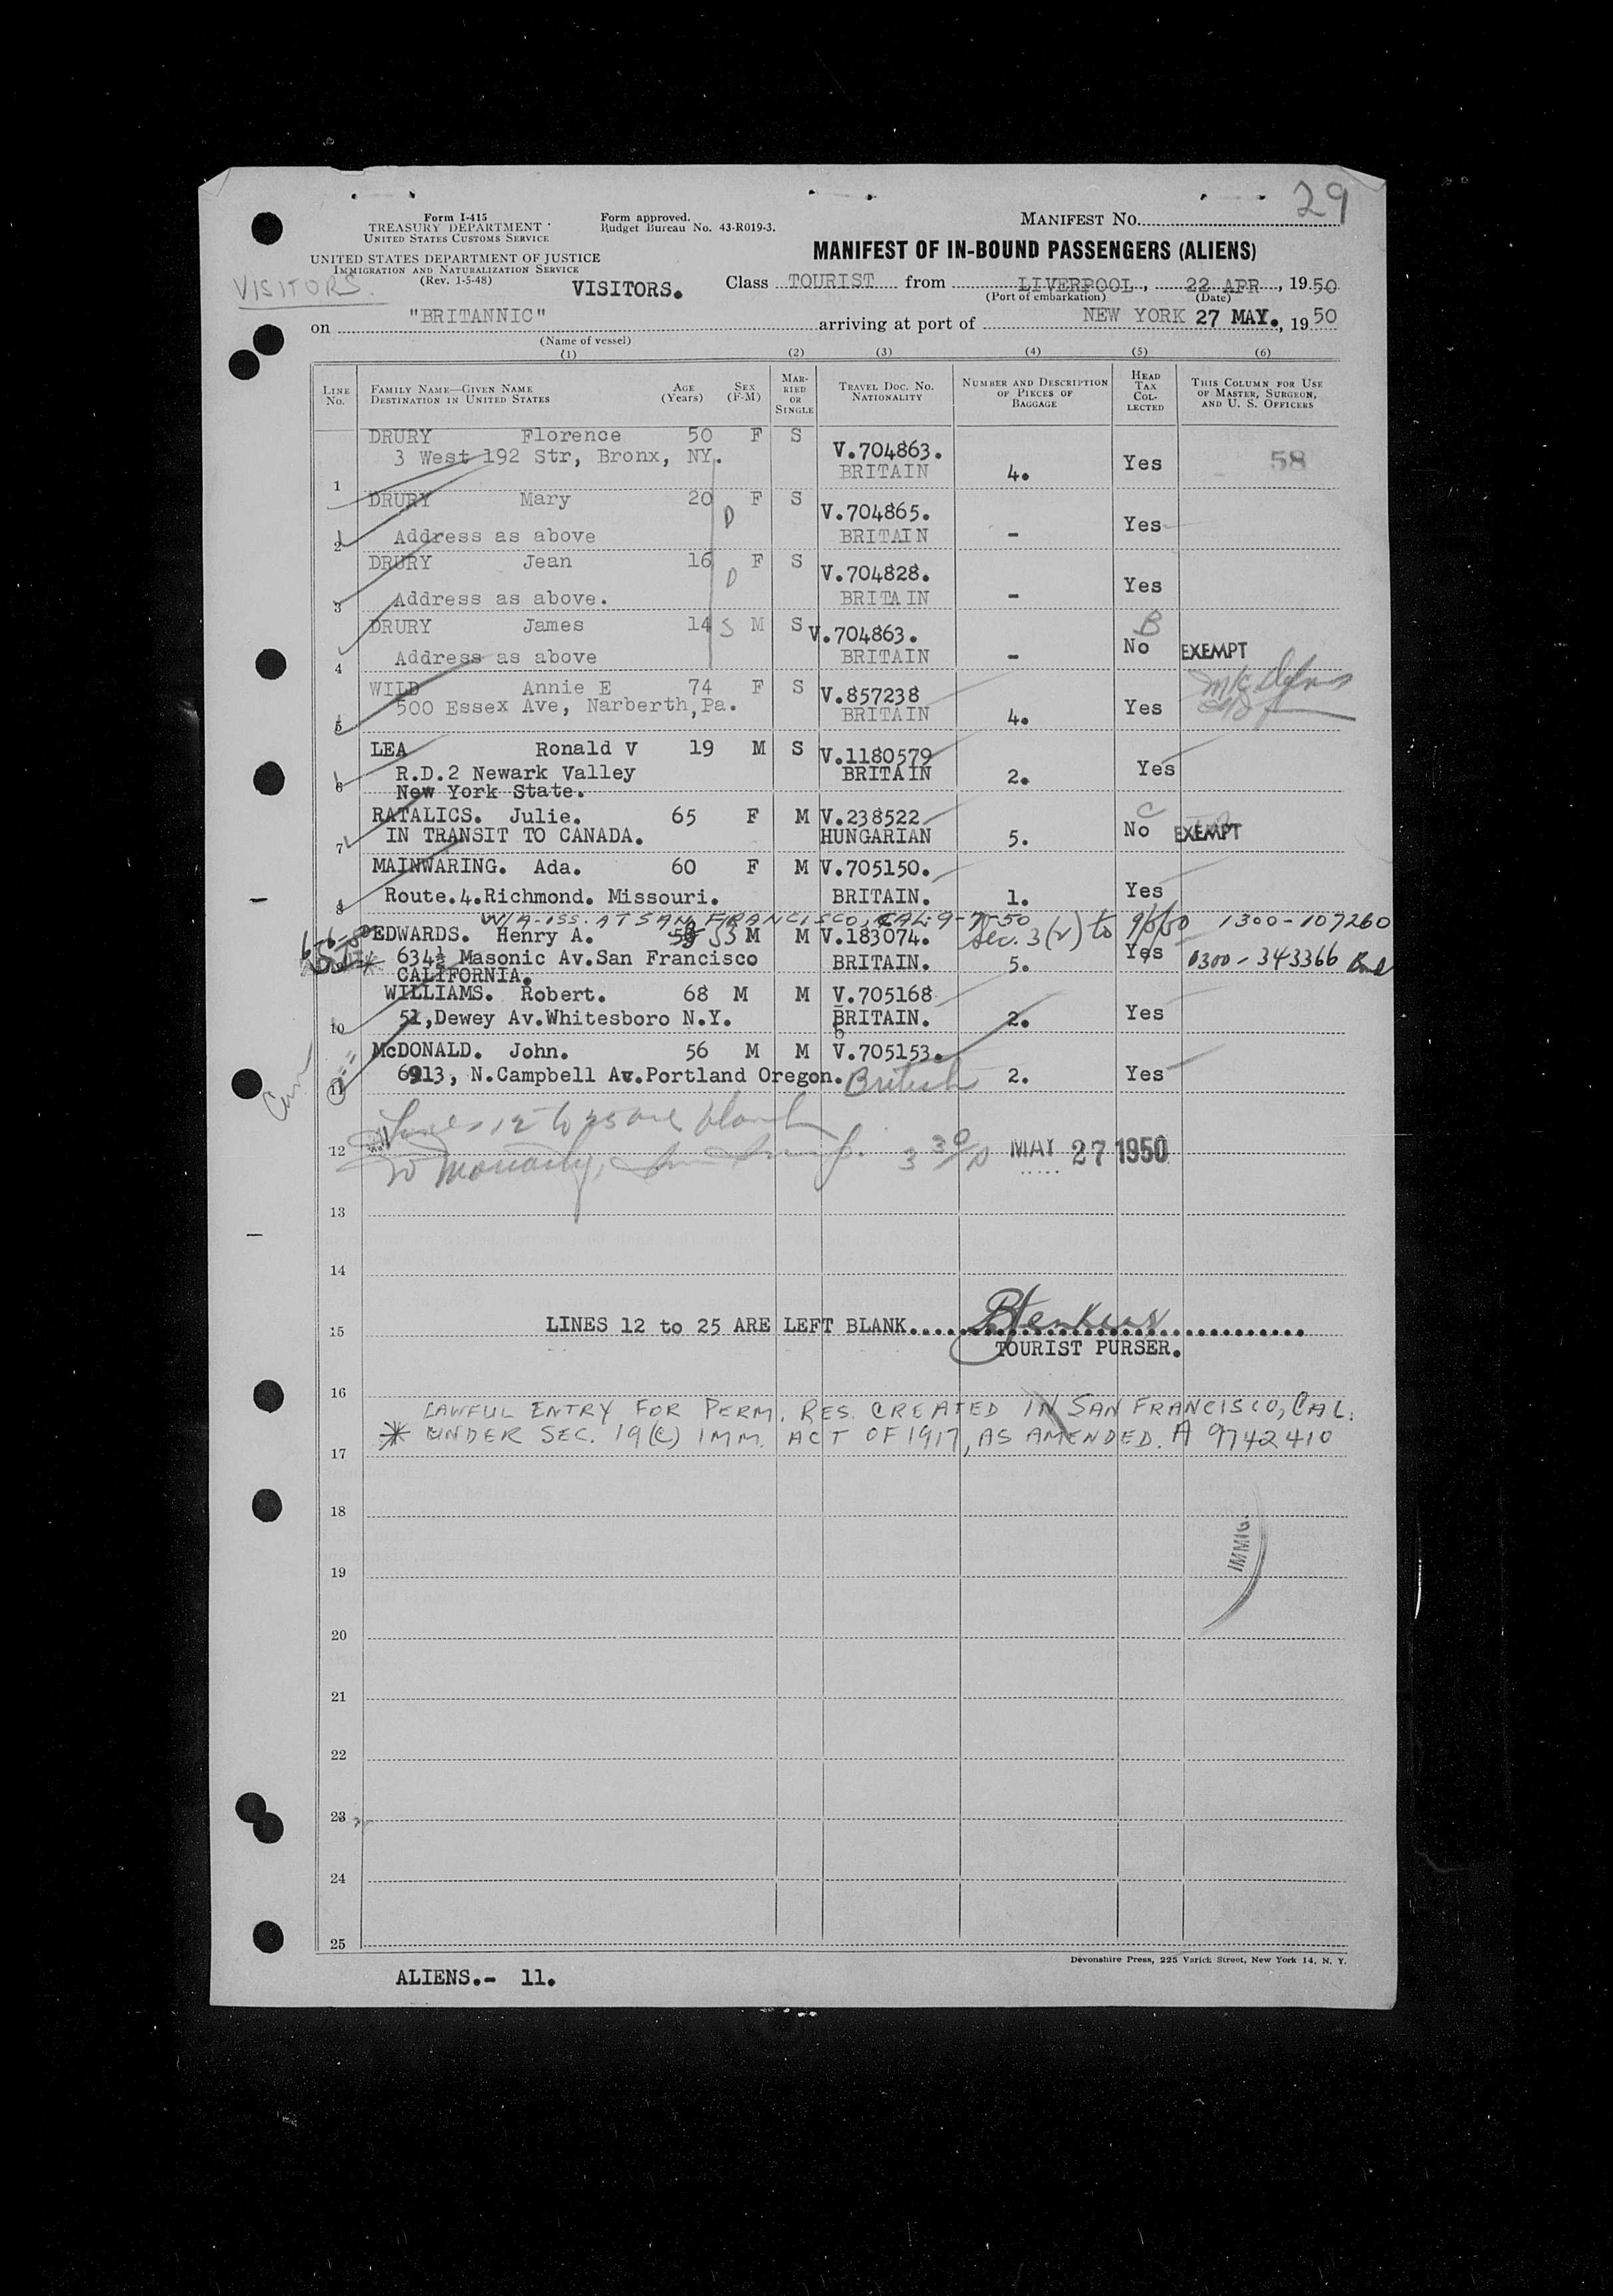 29
Form I-415
TREASURY DEPARTMENT
UNITED STATES CUSTOMS SERVICE
Form approved.
Budget Bureau No. 43-R019-3.
MANIFEST NO.
UNITED STATES DEPARTMENT OF JUSTICE
IMMIGRATION AND NATURALIZATION SERVICE
(Rev. 1-5-48)
MANIFEST OF IN-BOUND PASSENGERS (ALIENS)
VISITORS.
VISITORS.
Class TOURIST from LIVERPOOL, 22 APR, 1950
(Port of embarkation) (Date)
on "BRITANNIC" arriving at port of NEW YORK 27 MAY., 1950
(Name of vessel)
(1) (2) (3) (4) (5) (6)
LINE No. FAMILY NAME—GIVEN NAME DESTINATION IN UNITED STATES AGE (Years) SEX (F-M) MARRIED OR SINGLE TRAVEL DOC. NO. NATIONALITY NUMBER AND DESCRIPTION OF PIECES OF BAGGAGE HEAD TAX COLLECTED THIS COLUMN FOR USE OF MASTER, SURGEON, AND U. S. OFFICERS
DRURY Florence 50 F S V.704863.
3 West 192 Str, Bronx, NY. BRITAIN 4. Yes 58
1
DRURY Mary 20 F S V.704865.
D
2 Address as above BRITAIN - Yes
DRURY Jean 16 F S V.704828.
D
3 Address as above. BRITAIN - Yes
DRURY James 14 S M S V.704863. B
4 Address as above BRITAIN - No EXEMPT
WILD Annie E 74 F S V.857238
5 500 Essex Ave, Narberth,Pa. BRITAIN 4. Yes
LEA Ronald V 19 M S V.1180579
R.D.2 Newark Valley BRITAIN 2. Yes
6 New York State.
RATALICS. Julie. 65 F M V.238522 C
7 IN TRANSIT TO CANADA. HUNGARIAN 5. No EXEMPT
MAINWARING. Ada. 60 F M V.705150.
8 Route.4.Richmond. Missouri. BRITAIN. 1. Yes
W/A-ISS. AT SAN FRANCISCO, CAL. 9-7-50
EDWARDS. Henry A. 53 M M V.183074. Sec. 3(2) to 9/5/50 1300-107260
9 * 634½ Masonic Av.San Francisco BRITAIN. 5. Yes 0300-343366
CALIFORNIA.
WILLIAMS. Robert. 68 M M V.705168
10 51,Dewey Av.Whitesboro N.Y. BRITAIN. 2. Yes
McDONALD. John. 56 M M V.705153.
11 6913, N.Campbell Av.Portland Oregon. British 2. Yes
Lines 12 to 25 are blank
12 3 30/P MAY 27 1950
13
14
15 LINES 12 to 25 ARE LEFT BLANK
TOURIST PURSER.
16
LAWFUL ENTRY FOR PERM. RES. CREATED IN SAN FRANCISCO, CAL.
* UNDER SEC. 19(C) IMM. ACT OF 1917, AS AMENDED. A 9742410
17
18
IMMIG.
19
20
21
22
23
24
25
Devonshire Press, 225 Varick Street, New York 14, N. Y.
ALIENS.- 11.